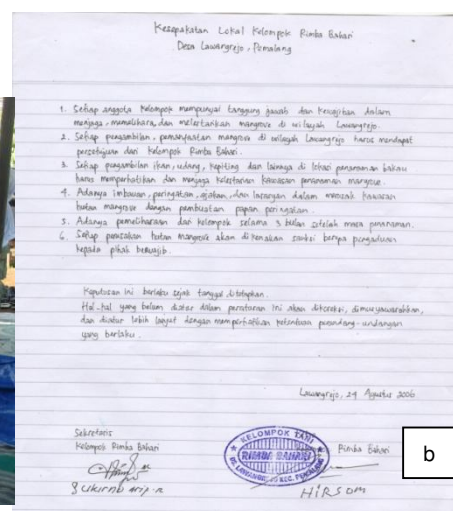 Kesepakatan Lokal Kelompok Rimba Bahari
Desa Lawangrejo, Pemalang
1. Setiap anggota kelompok mempunyai tanggung jawab dan kewajiban dalam
menjaga, memelihara, dan melestarikan mangrove di wilayah Lawangrejo.
2. Setiap pengambilan, pemanfaatan mangrove di wilayah Lawangrejo harus mendapat
persetujuan dari kelompok Rimba Bahari.
3. Setiap pengambilan ikan, udang, kepiting dan lainnya di lokasi penanaman bakau
harus memperhatikan dan menjaga kelestarian kawasan penanaman mangrove.
4. Adanya imbauan, peringatan, ajakan, dan larangan dalam merusak kawasan
hutan mangrove dengan pembuatan papan peringatan.
5. Adanya pemeliharaan dari kelompok selama 3 bulan setelah masa penanaman.
6. Setiap perusakan hutan mangrove akan dikenakan sanksi berupa pengaduan
kepada pihak berwajib.
Keputusan ini berlaku sejak tanggal ditetapkan.
Hal-hal yang belum diatur dalam peraturan ini akan dikoreksi, dimusyawarahkan,
dan diatur lebih lanjut dengan memperhatikan ketentuan perundang-undangan
yang berlaku.
Lawangrejo, 24 Agustus 2006
Sekretaris
Kelompok Rimba Bahari
Rimba Bahari
KELOMPOK TANI
RIMBA BAHARI
HIRSOM
b